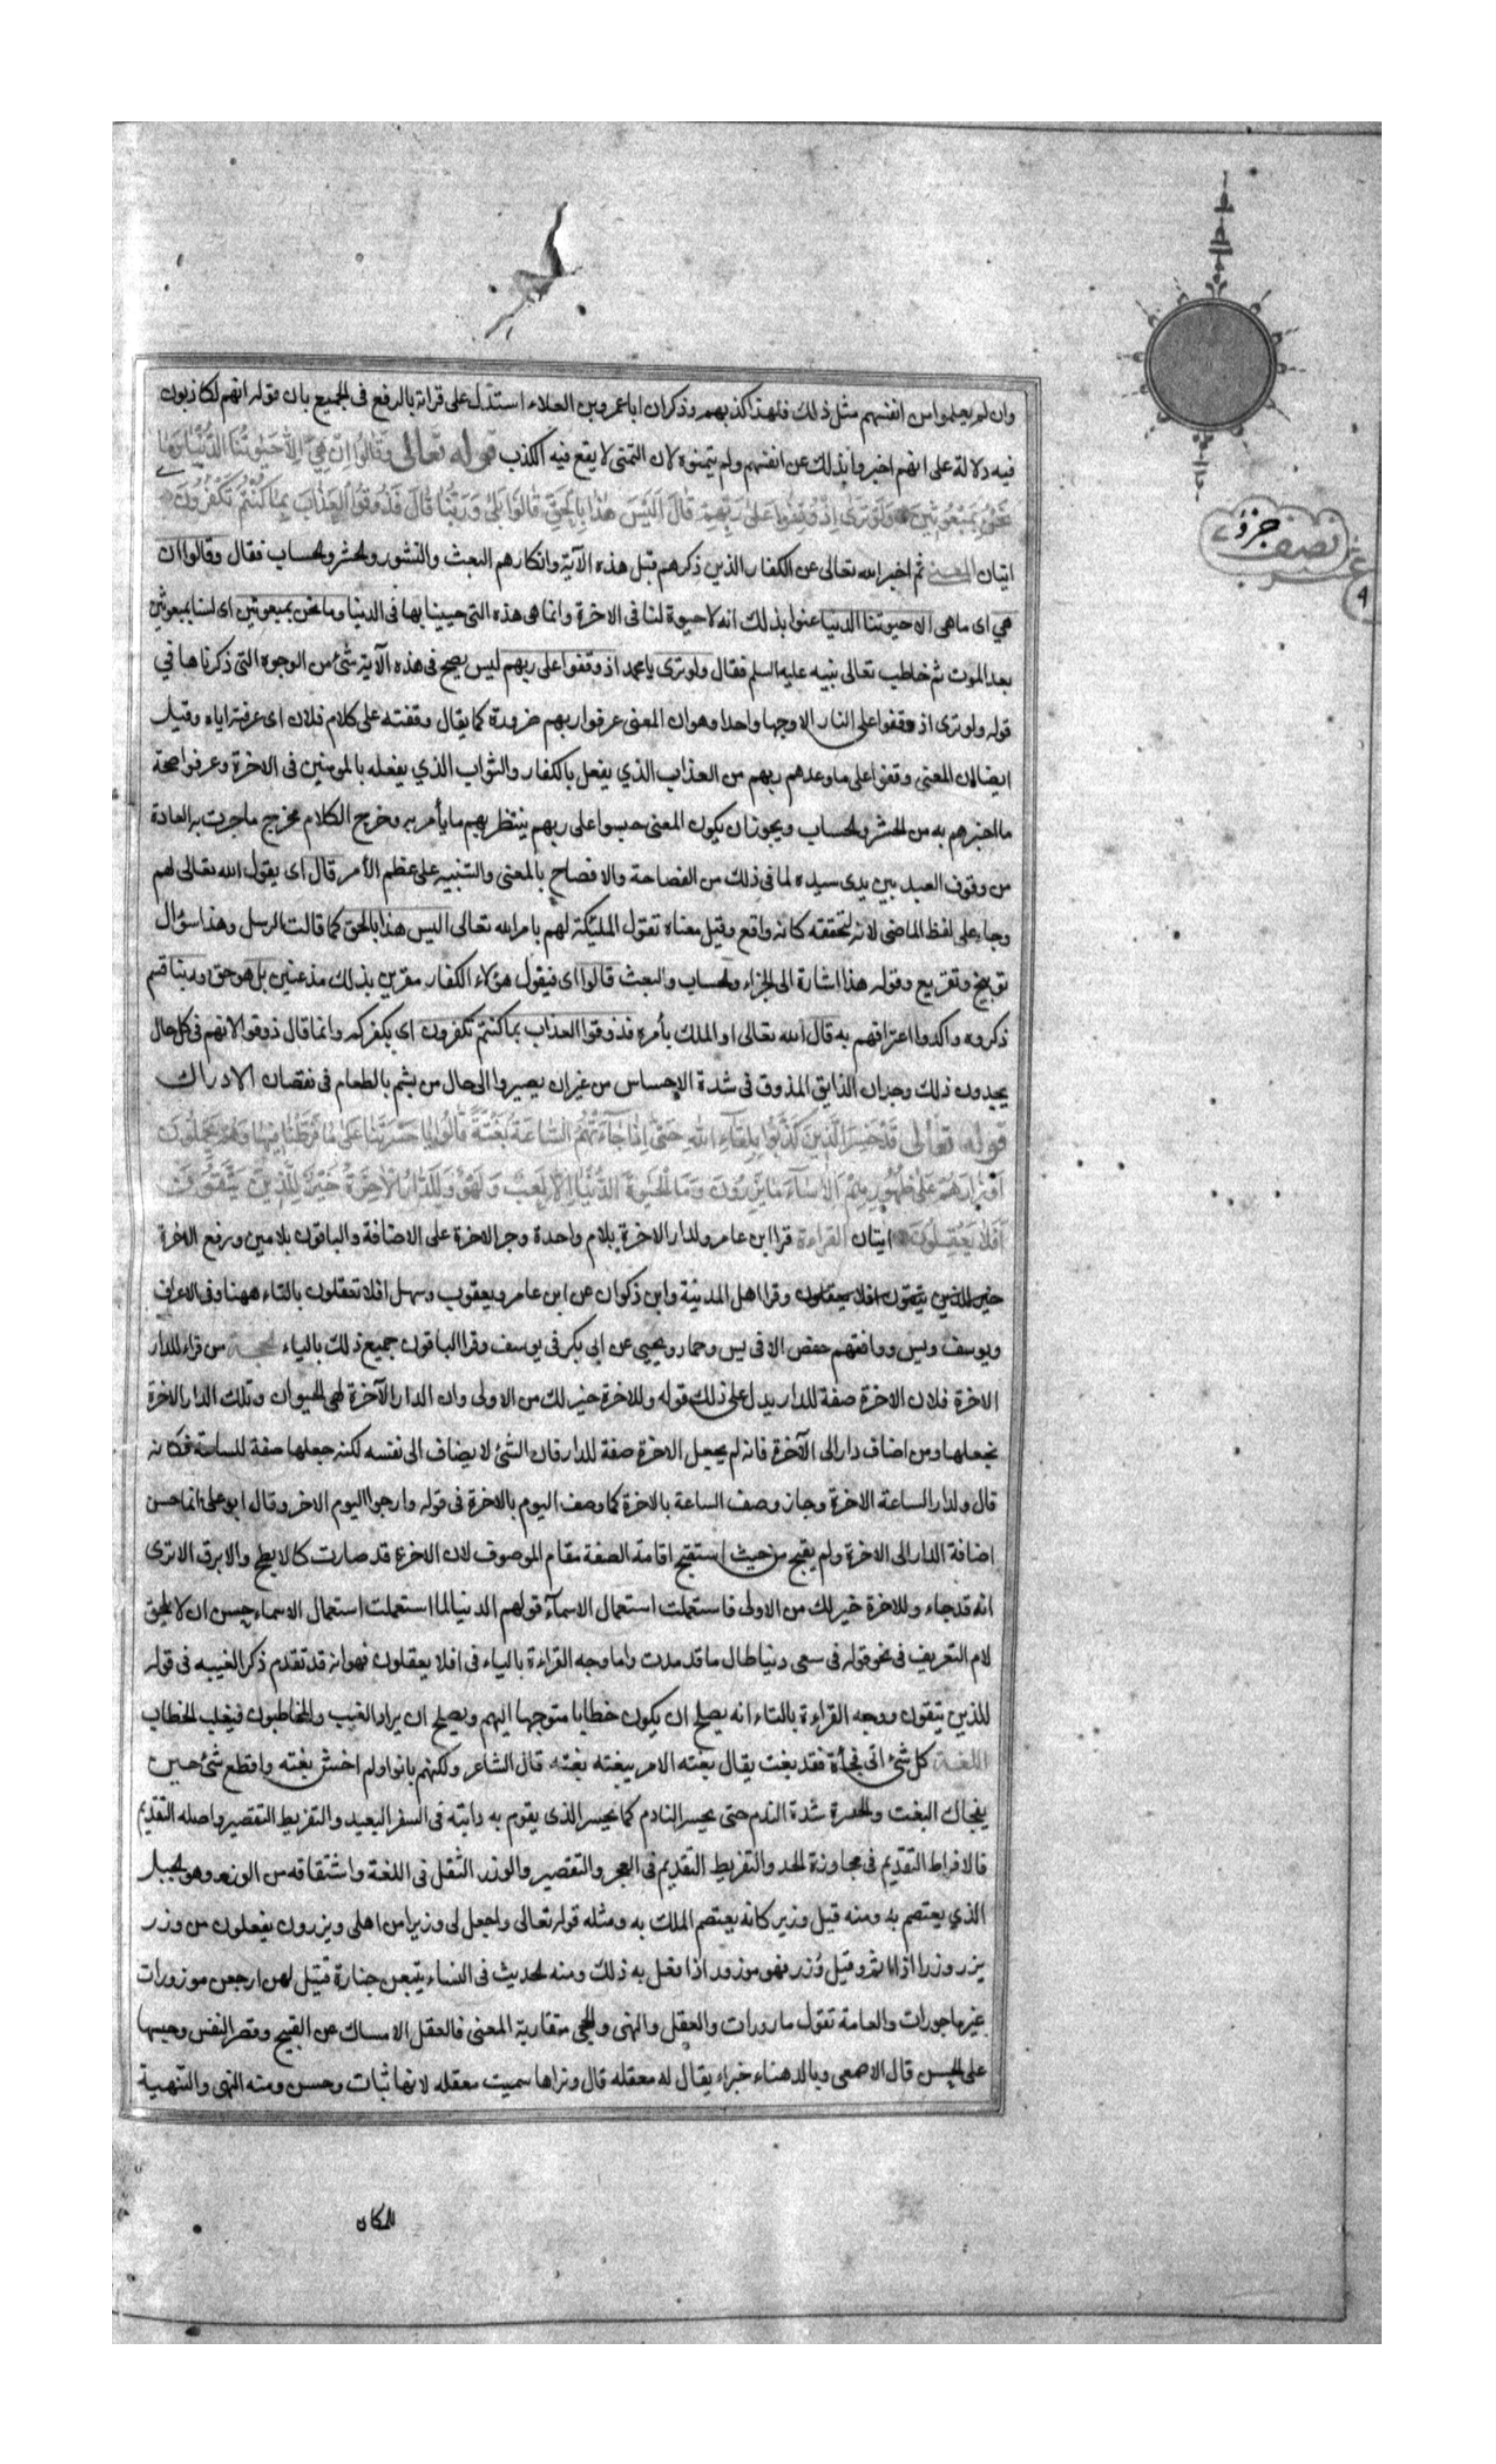 وان لم يعلموا من انفسهم مثل ذلك فلهذا كذبهم وذكر ان ابا عمرو بن العلاء استدل على قراته بالرفع فى الجميع بان قوله انهم لكاذبون
فيه دلالة على انهم اخبروا بذلك عن انفسهم ولم يتمنوه لان التمنى لا يقع فيه الكذب قوله تعالى وَقَالُوا اِنْ هِيَ اِلَّا حَيٰوتُنَا الدُّنْيَا وَمَا
نَحْنُ بِمَبْعُوثِينَ وَلَوْ تَرٰى اِذْ وُقِفُوا عَلٰى رَبِّهِمْ قَالَ اَلَيْسَ هٰذَا بِالْحَقِّ قَالُوا بَلٰى وَرَبِّنَا قَالَ فَذُوقُوا الْعَذَابَ بِمَا كُنْتُمْ تَكْفُرُونَ
ايتان المعنى ثم اخبر الله تعالى عن الكفار الذين ذكرهم قبل هذه الآية وانكارهم البعث والنشور والحشر والحساب فقال وقالوا ان
هي اى ما هى الا حيوتنا الدنيا عنوا بذلك انه لا حيوة لنا فى الاخرة وانما هى هذه التى حيينا بها فى الدنيا وما نحن بمبعوثين اى لسنا بمبعوثين
بعد الموت ثم خاطب تعالى نبيه عليه السلم فقال ولو ترى يا محمد اذ وقفوا على ربهم ليس يصح فى هذه الآية شئ من الوجوه التى ذكرناها في
قوله ولو ترى اذ وقفوا على النار الا وجها واحدا وهو ان المعنى عرفوا ربهم ضرورة كما يقال وقفته على كلام فلان اى عرفته اياه وقيل
ايضا ان المعنى وقفوا على ما وعدهم ربهم من العذاب الذي يفعل بالكفار والثواب الذي يفعله بالمومنين فى الاخرة وعرفوا صحة
ما اخبرهم به من الحشر والحساب ويجوز ان يكون المعنى حبسوا على ربهم ينتظر بهم ما يأمر به وخرج الكلام مخرج ما جرت به العادة
من وقوف العبد بين يدى سيده لما فى ذلك من الفصاحة والافصاح بالمعنى والتنبيه على عظم الأمر قال اى يقول الله تعالى لهم
وجاء على لفظ الماضى لانه لتحققه كانه واقع وقيل معناه تقول الملئكة لهم بامر الله تعالى اليس هذا بالحق كما قالت الرسل وهذا سؤال
توبيخ وتقريع وقوله هذا اشارة الى الجزاء والحساب والبعث قالوا اى فيقول هؤلاء الكفار مقرين بذلك مذعنين بل هو حق وربنا قسم
ذكروه واكدوا اعترافهم به قال الله تعالى او الملك بأمره فذوقوا العذاب بما كنتم تكفرون اى بكفركم وانما قال ذوقوا لانهم فى كل حال
يجدون ذلك وجدان الذايق المذوق فى شدة الاحساس من غير ان يصيروا الى حال من يشم بالطعام فى نقصان الادراك
قوله تعالى قَدْ خَسِرَ الَّذِينَ كَذَّبُوا بِلِقَآءِ اللهِ حَتّٰى اِذَا جَآءَتْهُمُ السَّاعَةُ بَغْتَةً قَالُوا يَا حَسْرَتَنَا عَلٰى مَا فَرَّطْنَا فِيهَا وَهُمْ يَحْمِلُونَ
اَوْزَارَهُمْ عَلٰى ظُهُورِهِمْ اَلَا سَآءَ مَا يَزِرُونَ وَمَا الْحَيٰوةُ الدُّنْيَا اِلَّا لَعِبٌ وَلَهْوٌ وَلَلدَّارُ الْاٰخِرَةُ خَيْرٌ لِلَّذِينَ يَتَّقُونَ
اَفَلَا يَعْقِلُونَ ايتان القراءة قرا ابن عامر ولدار الاخرة بلام واحدة وجر الاخرة على الاضافة والباقون بلامين ورفع الاخرة
خير للذين يتقون افلا يعقلون وقرا اهل المدينة وابن ذكوان عن ابن عامر ويعقوب وسهل افلا تعقلون بالتاء ههنا وفى الاعراف
ويوسف ويس ووافقهم حفص الا فى يس وحماد ويحيى عن ابى بكر فى يوسف وقرا الباقون جميع ذلك بالياء الحجة من قرا وللدار
الاخرة فلان الاخرة صفة للدار يدل على ذلك قوله وللاخرة خير لك من الاولى وان الدار الآخرة لهى الحيوان وتلك الدار الاخرة
نجعلها ومن اضاف دار الى الآخرة فانه لم يجعل الاخرة صفة للدار فان الشئ لا يضاف الى نفسه لكنه جعلها صفة للساعة فكانه
قال ولدار الساعة الاخرة وجاز وصف الساعة بالاخرة كما وصف اليوم بالاخرة فى قوله وارجوا اليوم الاخر وقال ابو على انما حسن
اضافة الدار الى الاخرة ولم يقبح من حيث استقبح اقامة الصفة مقام الموصوف لان الاخرة قد صارت كالابطح والابرق الا ترى
انه قد جاء وللاخرة خير لك من الاولى فاستعملت استعمال الاسمآء قولهم الدنيا لما استعملت استعمال الاسماء حسن ان لا يلحق
لام التعريف فى نحو قوله فى سعى دنيا طال ما قد مدت واما وجه القراءة بالياء فى افلا يعقلون فهو انه قد تقدم ذكر الغيبه فى قوله
للذين يتقون ووجه القراءة بالتاء انه يصلح ان يكون خطابا متوجها اليهم ويصلح ان يراد الغيب والمخاطبون فيغلب الخطاب
اللغة كل شئ اتى فجأة فقد بغت يقال بغته الامر يبغته بغته قال الشاعر ولكنهم بانوا ولم اخش بغته وافظع شئ حين
يفجاك البغت والحسرة شدة الندم حتى يحسر النادم كما يحسر الذى يقوم به دابته فى السفر البعيد والتفريط التقصير واصله التقديم
فالافراط التقديم فى مجاوزة الحد والتفريط التقديم فى العجز والتقصير والوزر الثقل فى اللغة واشتقاقه من الوزر وهو الجبل
الذي يعتصم به ومنه قيل وزير كانه يعتصم الملك به ومثله قوله تعالى واجعل لى وزيرا من اهلى ويزرون يفعلون من وزر
يزر وزرا اذا اثم وقيل وُزر فهو موزور اذا فعل به ذلك ومنه الحديث فى النساء يتبعن جنازة قتيل لهن ارجعن موزورات
غير ماجورات والعامة تقول مازورات والعقل والنهى والحجى متقاربة المعنى فالعقل الامساك عن القبيح وقصر النفس وحبسها
على الحسن قال الاصمعى وبالدهناء خبراء يقال له معقله قال ونراها سميت معقله لانها ثبات وحسن ومنه النهى والتنهية
للمكان
نصف جزؤ
عشر
٩